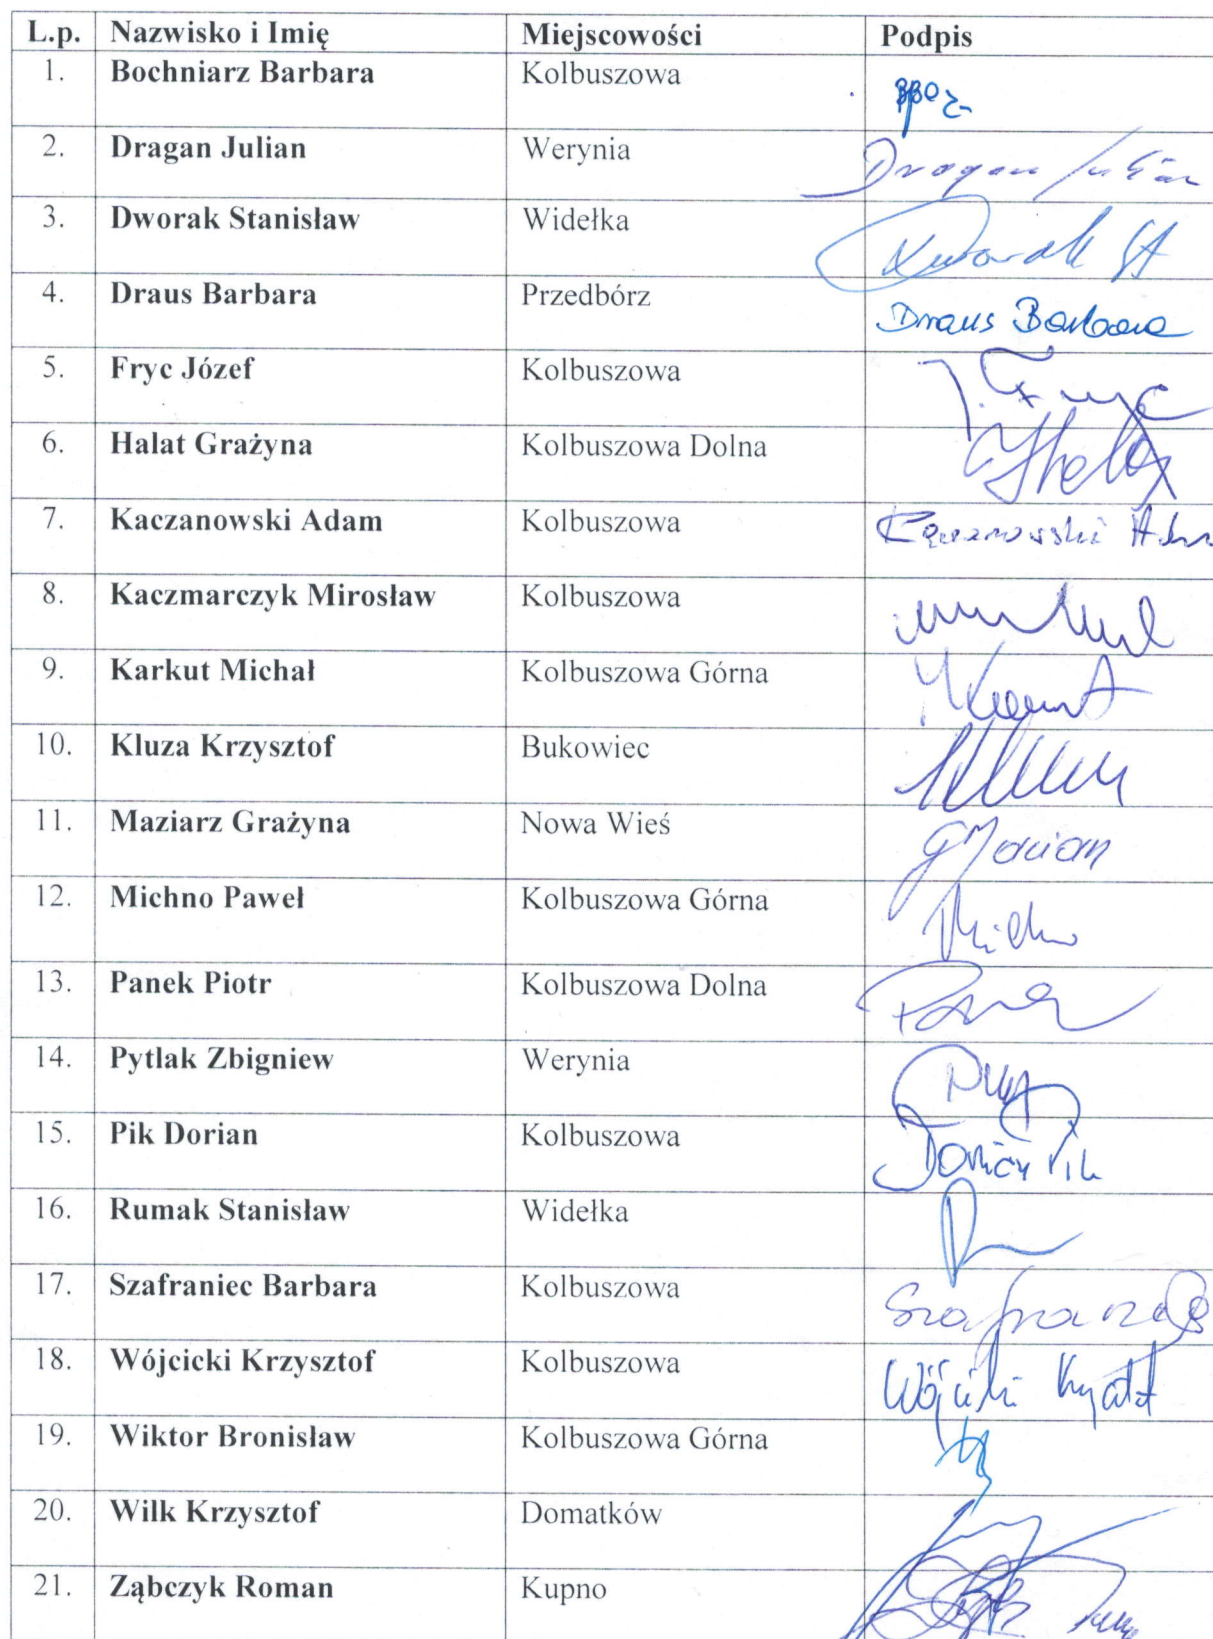 L.p. Nazwisko i Imię Miejscowości Podpis
1. Bochniarz Barbara Kolbuszowa
2. Dragan Julian Werynia Dragan Julian
3. Dworak Stanisław Widełka Dworak St
4. Draus Barbara Przedbórz Draus Barbara
5. Fryc Józef Kolbuszowa J. Fryc
6. Halat Grażyna Kolbuszowa Dolna
7. Kaczanowski Adam Kolbuszowa Kaczanowski Adam
8. Kaczmarczyk Mirosław Kolbuszowa
9. Karkut Michał Kolbuszowa Górna
10. Kluza Krzysztof Bukowiec
11. Maziarz Grażyna Nowa Wieś
12. Michno Paweł Kolbuszowa Górna
13. Panek Piotr Kolbuszowa Dolna
14. Pytlak Zbigniew Werynia
15. Pik Dorian Kolbuszowa Dorian Pik
16. Rumak Stanisław Widełka
17. Szafraniec Barbara Kolbuszowa
18. Wójcicki Krzysztof Kolbuszowa
19. Wiktor Bronisław Kolbuszowa Górna
20. Wilk Krzysztof Domatków
21. Ząbczyk Roman Kupno